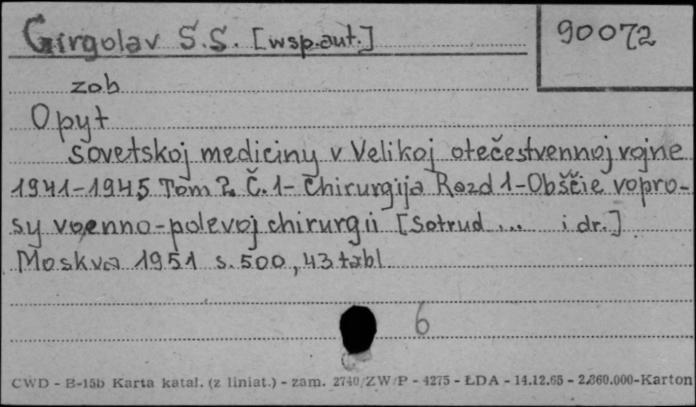 Girgolav S.S. [wsp.aut.]
90072
zob
Opyt
sovetskoj mediciny v Velikoj otečestvennoj vojne
1941-1945 Tom Č.1- Chirurgija Razd 1-Obščie vopro-
sy voenno-polevoj chirurgii [Sotrud ... i dr.]
Moskva 1951 s.500, 43 tabl
6
CWD - B-15b Karta katal. (z liniat.) - zam. 2740/ZW/P - 4275 - ŁDA - 14.12.65 - 2.360.000-Karton